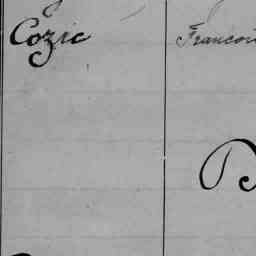 Cozic Francoi